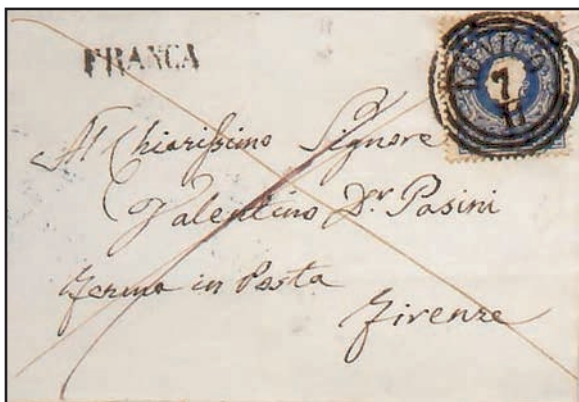 FRANCA
LONIGO
7
11
Al Chiarissimo Signore
Valentino Dr. Pasini
ferma in Posta
Firenze